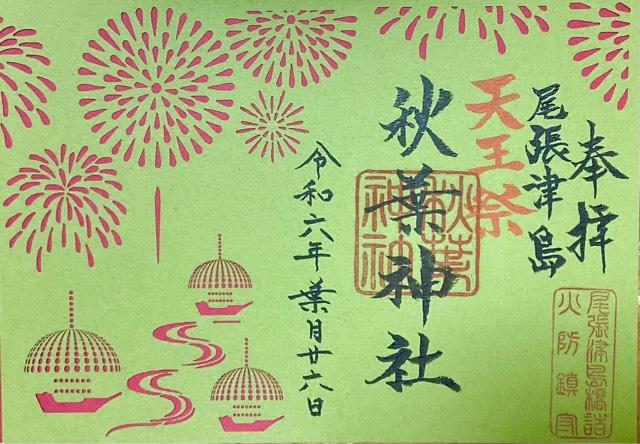 奉拝
尾張津島
天王祭
秋葉神社
令和六年葉月廿六日
秋葉
神社
尾張津島橋詰
火防鎮守